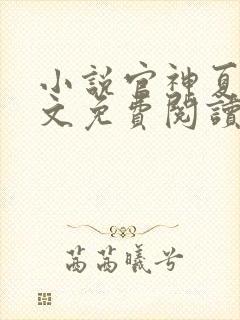 小說官神夏
文免費閱讀
茜茜曦兮